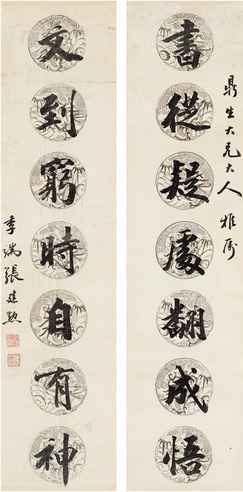 書從疑處翻成悟
鼎生大兄大人雅屬
文到窮時自有神
季端張建勳